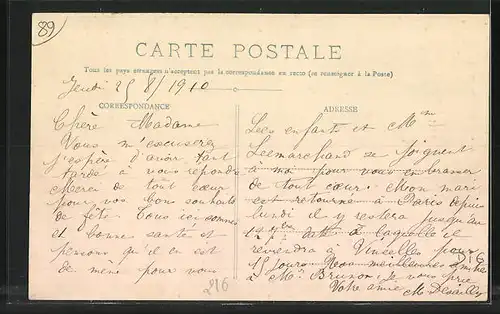 89
CARTE POSTALE
Tous les pays étrangers n'acceptent pas la correspondance au recto (se renseigner à la Poste)
Jeudi 25/8/1910
CORRESPONDANCE
Chère Madame
Vous m'excuserez
j'espère d'avoir tant
tardé à vous répondre
Merci de tout cœur
pour vos bons souhaits
de fête. Tous ici sommes
en bonne santé et
pensons qu'il en est
de même pour vous
216
ADRESSE
Les enfants et Mme
Lemarchand se joignent
à moi pour vous embrasser
de tout cœur. Mon mari
est retourné à Paris depuis
lundi il y restera jusqu'au
à laquelle il
reviendra à Vincelles pour
15 jours. Nos meilleures amitiés
à Mr Brunon, je vous prie
Votre amie M.
D16